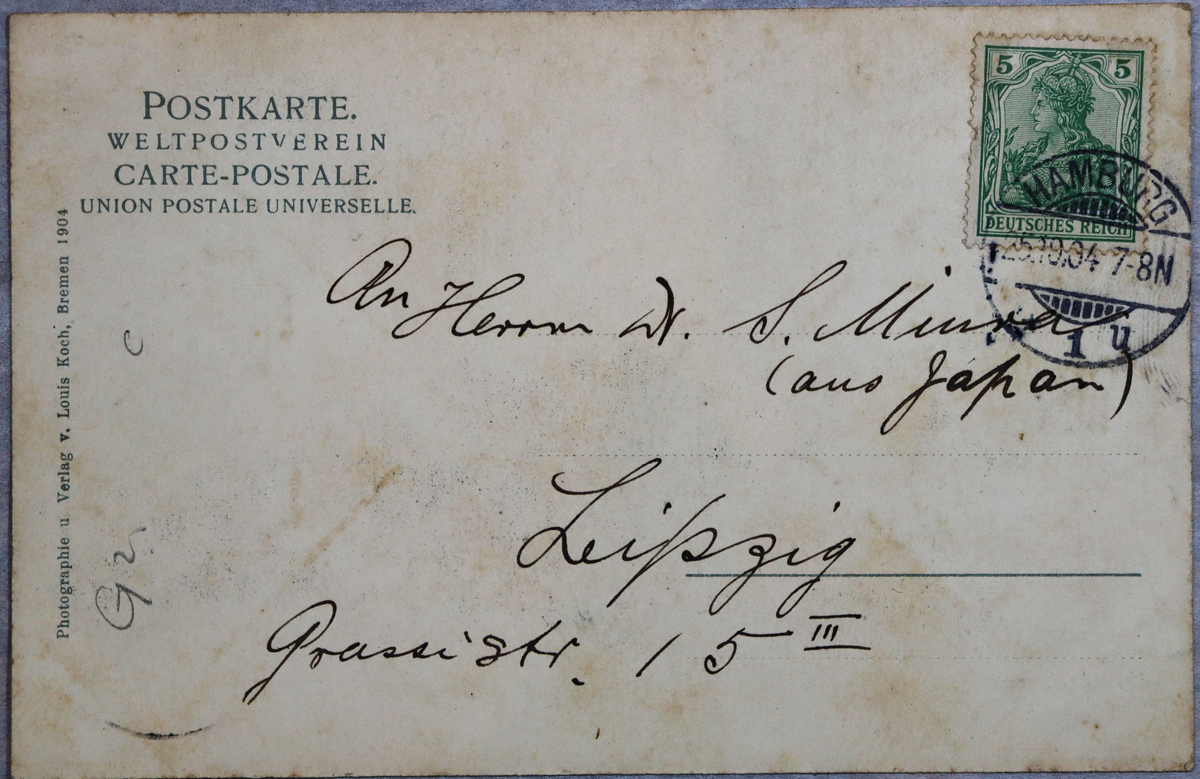 POSTKARTE.
WELTPOSTVEREIN
CARTE-POSTALE.
UNION POSTALE UNIVERSELLE.
5 5
DEUTSCHES REICH
HAMBURG
25.10.04 7-8N
1 u
An Herrn Dr. S. Miura
(aus Japan)
Leipzig
Grassistr. 15 III
Photographie u. Verlag v. Louis Koch, Bremen 1904